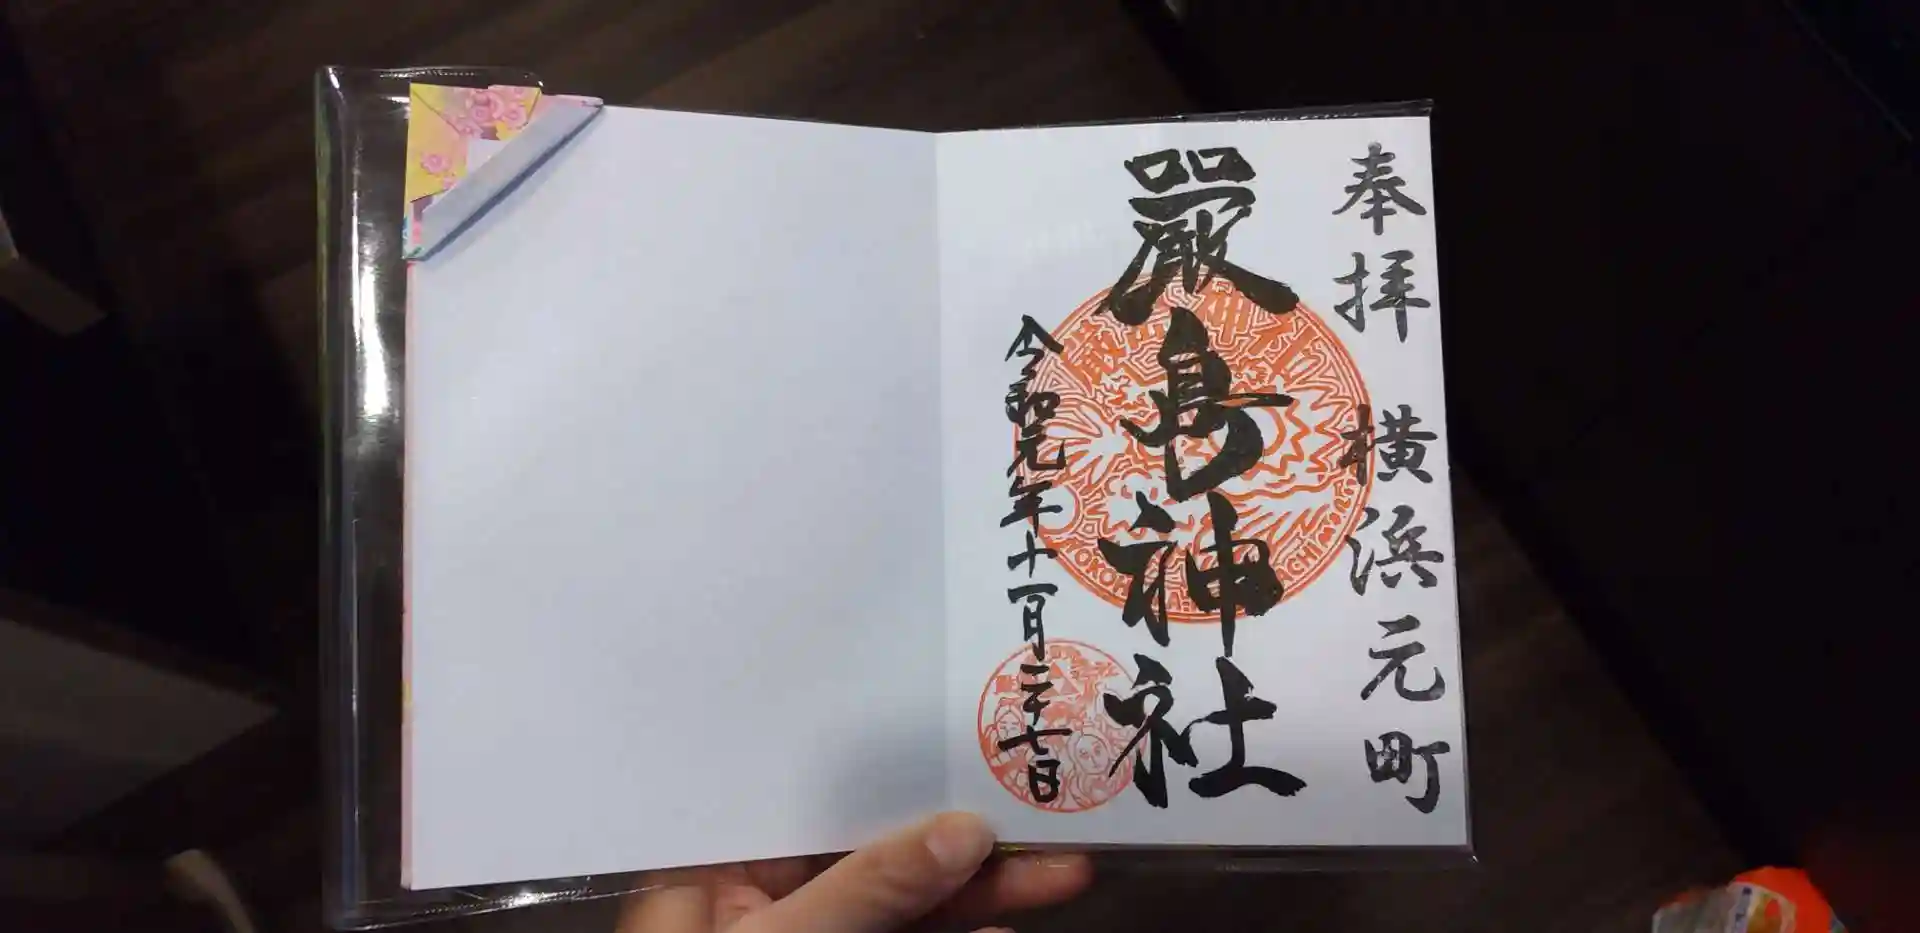 奉拝 横浜元町
嚴島神社
令和元年十一月二十七日
厳島神社